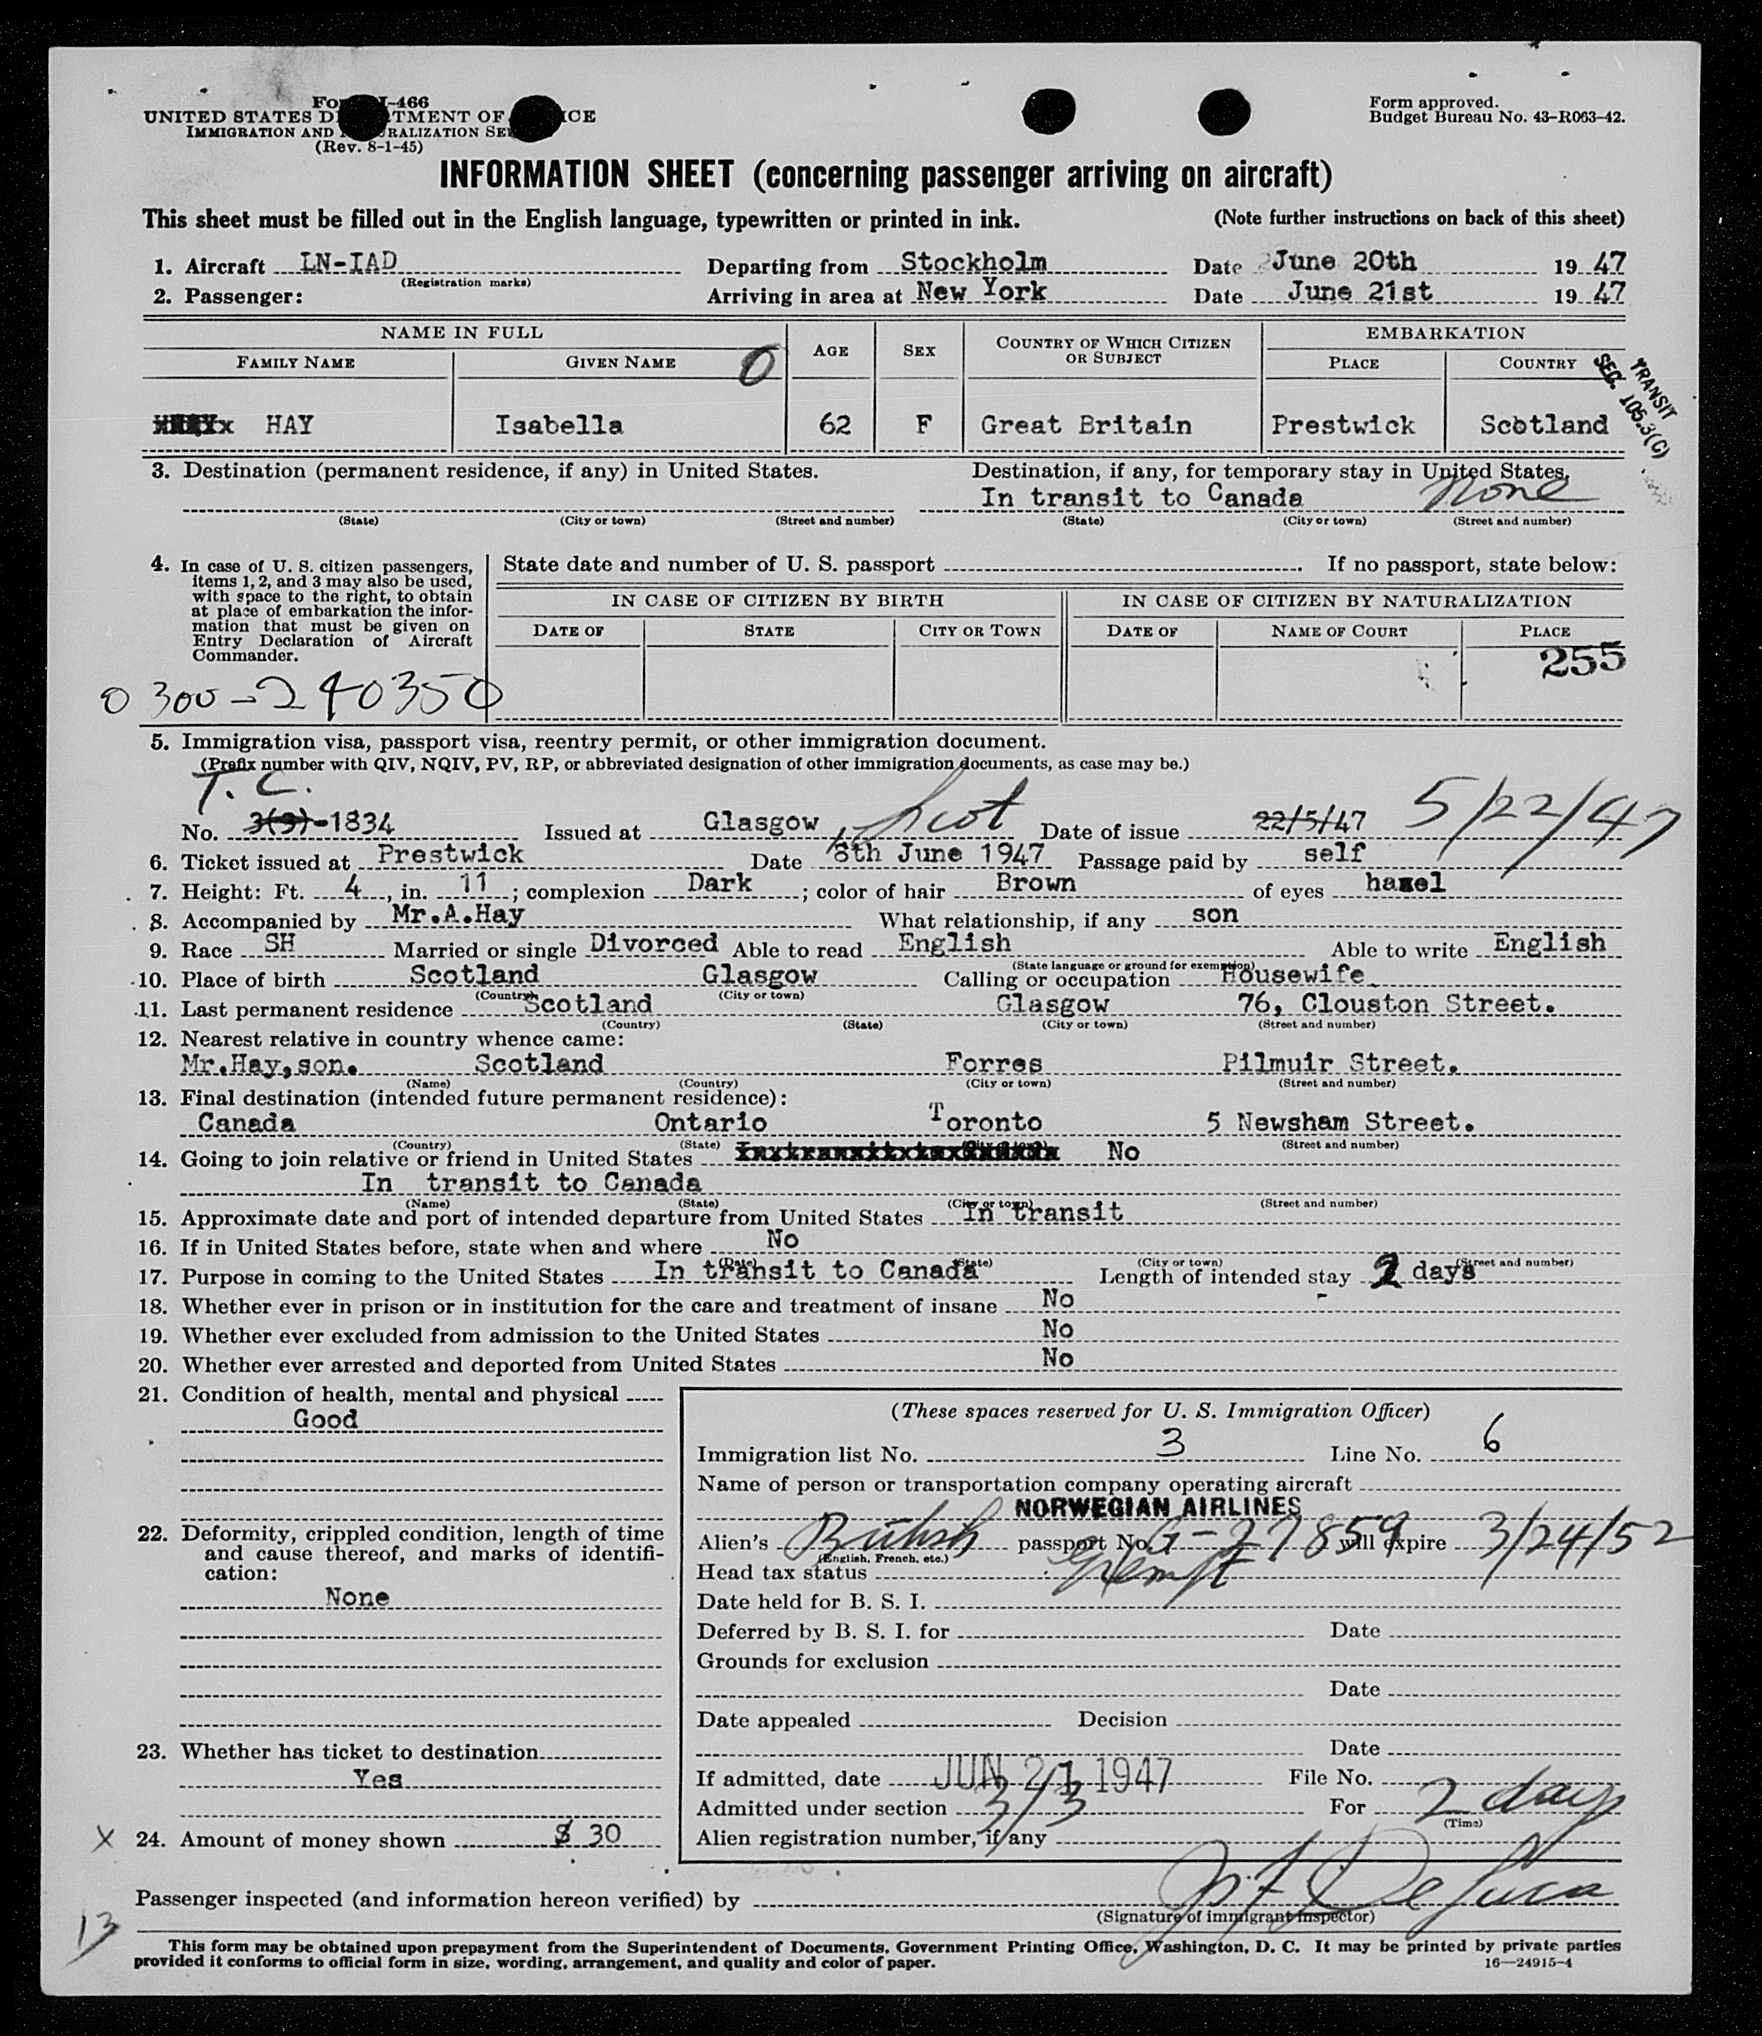 Form I-466
UNITED STATES DEPARTMENT OF JUSTICE
IMMIGRATION AND NATURALIZATION SERVICE
(Rev. 8-1-45)
Form approved.
Budget Bureau No. 43-R063-42.
INFORMATION SHEET (concerning passenger arriving on aircraft)
This sheet must be filled out in the English language, typewritten or printed in ink. (Note further instructions on back of this sheet)
1. Aircraft LN-IAD Departing from Stockholm Date June 20th 19 47
(Registration marks)
2. Passenger: Arriving in area at New York Date June 21st 19 47
NAME IN FULL AGE SEX COUNTRY OF WHICH CITIZEN OR SUBJECT EMBARKATION
FAMILY NAME GIVEN NAME 0 PLACE COUNTRY
TRANSIT
SEC. 105.3(C)
HAY Isabella 62 F Great Britain Prestwick Scotland
3. Destination (permanent residence, if any) in United States. Destination, if any, for temporary stay in United States.
In transit to Canada None
(State) (City or town) (Street and number) (State) (City or town) (Street and number)
4. In case of U. S. citizen passengers, items 1, 2, and 3 may also be used, with space to the right, to obtain at place of embarkation the information that must be given on Entry Declaration of Aircraft Commander.
State date and number of U. S. passport . If no passport, state below:
IN CASE OF CITIZEN BY BIRTH IN CASE OF CITIZEN BY NATURALIZATION
DATE OF STATE CITY OR TOWN DATE OF NAME OF COURT PLACE
255
0 300-240350
5. Immigration visa, passport visa, reentry permit, or other immigration document.
(Prefix number with QIV, NQIV, PV, RP, or abbreviated designation of other immigration documents, as case may be.)
T. C.
No. 3(3)-1834 Issued at Glasgow, Scot Date of issue 22/5/47 5/22/47
6. Ticket issued at Prestwick Date 6th June 1947 Passage paid by self
7. Height: Ft. 4, in. 11; complexion Dark; color of hair Brown of eyes hazel
8. Accompanied by Mr.A.Hay What relationship, if any son
9. Race SH Married or single Divorced Able to read English Able to write English
(State language or ground for exemption)
10. Place of birth Scotland Glasgow Calling or occupation Housewife.
(Country) (City or town)
11. Last permanent residence Scotland Glasgow 76, Clouston Street.
(Country) (State) (City or town) (Street and number)
12. Nearest relative in country whence came:
Mr.Hay,son. Scotland Forres Pilmuir Street.
(Name) (Country) (City or town) (Street and number)
13. Final destination (intended future permanent residence):
Canada Ontario Toronto 5 Newsham Street.
(Country) (State) (City or town) (Street and number)
14. Going to join relative or friend in United States No
In transit to Canada
(Name) (State) (City or town) (Street and number)
15. Approximate date and port of intended departure from United States In transit
16. If in United States before, state when and where No
(Date) (State) (City or town) (Street and number)
17. Purpose in coming to the United States In transit to Canada Length of intended stay 2 days
18. Whether ever in prison or in institution for the care and treatment of insane No
19. Whether ever excluded from admission to the United States No
20. Whether ever arrested and deported from United States No
21. Condition of health, mental and physical
Good
22. Deformity, crippled condition, length of time
and cause thereof, and marks of identifi-
cation:
None
23. Whether has ticket to destination
Yes
X 24. Amount of money shown $ 30
(These spaces reserved for U. S. Immigration Officer)
Immigration list No. 3 Line No. 6
Name of person or transportation company operating aircraft
NORWEGIAN AIRLINES
Alien's British passport No. G-27859 will expire 3/24/52
(English, French, etc.)
Head tax status Exempt
Date held for B. S. I.
Deferred by B. S. I. for Date
Grounds for exclusion
Date
Date appealed Decision
Date
If admitted, date JUN 21 1947 File No.
Admitted under section 3/3 For 2 days
(Time)
Alien registration number, if any
Passenger inspected (and information hereon verified) by J F De Luca
(Signature of immigrant inspector)
13
This form may be obtained upon prepayment from the Superintendent of Documents, Government Printing Office, Washington, D. C. It may be printed by private parties
provided it conforms to official form in size, wording, arrangement, and quality and color of paper. 16—24915-4